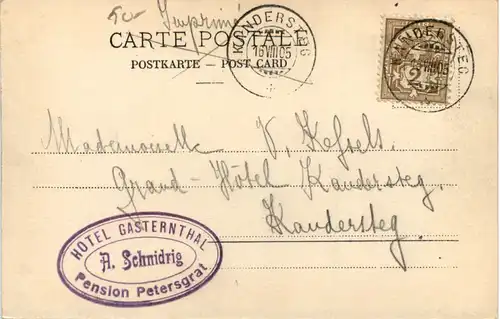 Imprimé
CARTE POSTALE
POSTKARTE – POST CARD
KANDERSTEG
16 VIII 05
KANDERSTEG
VIII 05
2
Mademoiselle V. Kessels.
Grand-Hôtel Kandersteg.
Kandersteg.
HOTEL GASTERNTHAL
A. Schnidrig
Pension Petersgrat